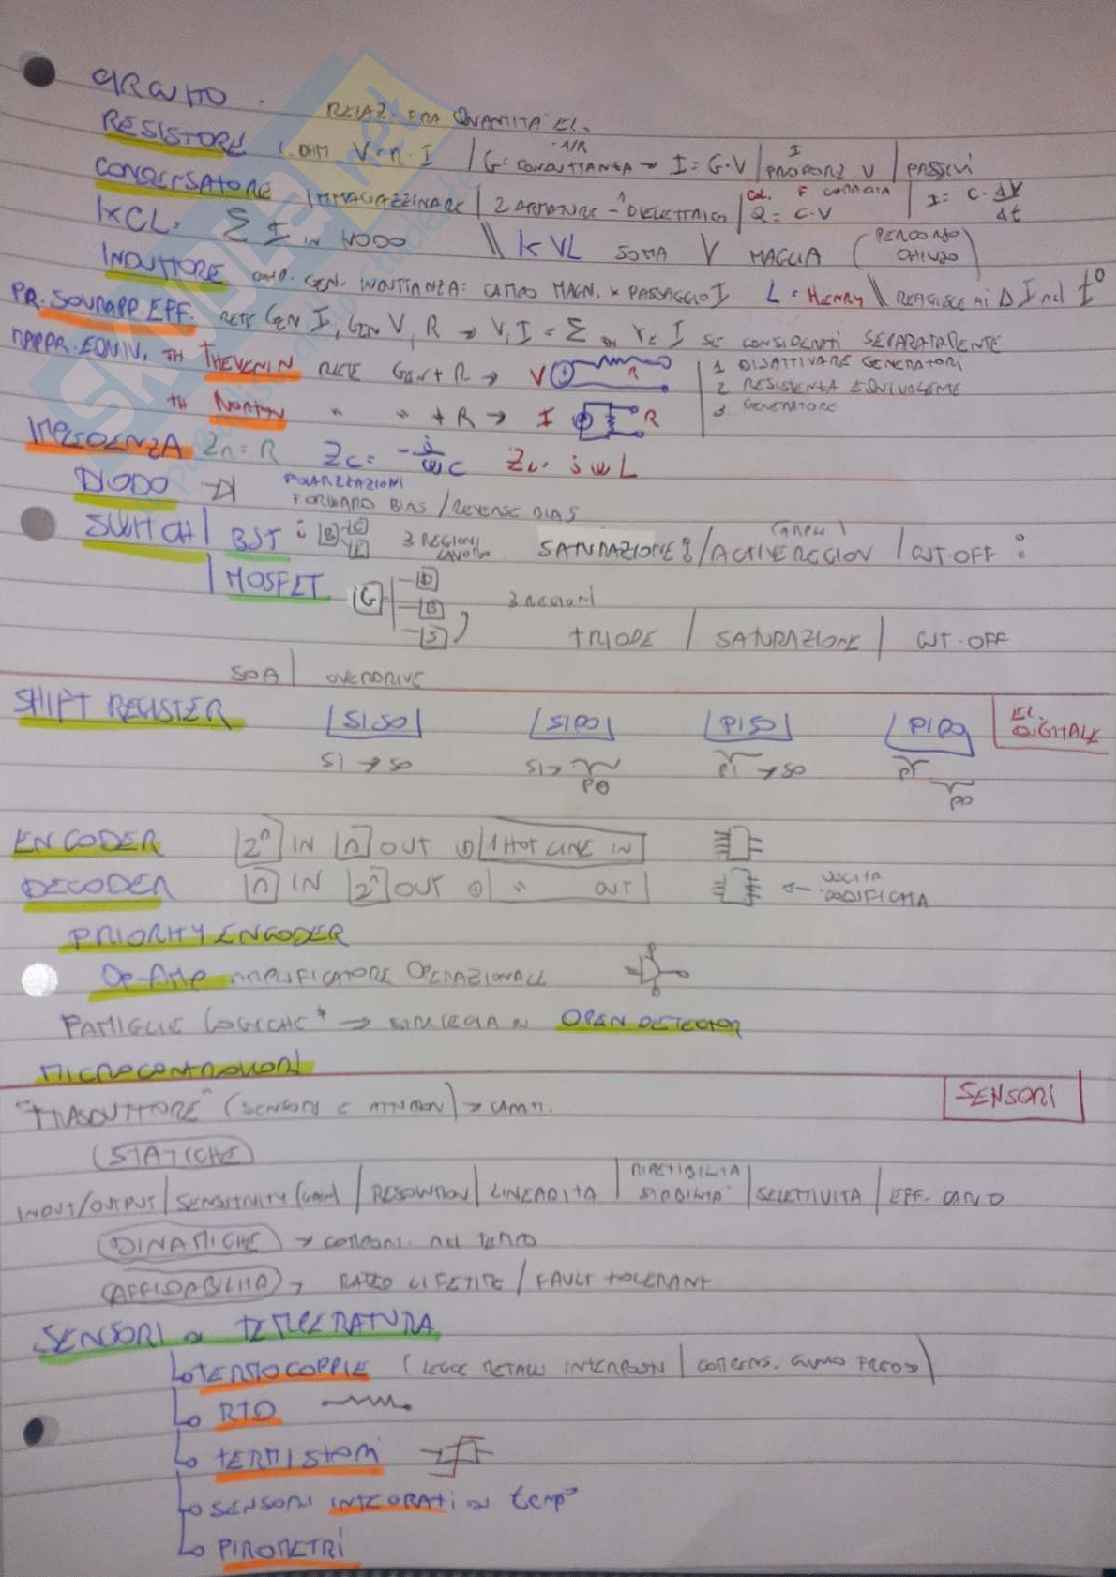 CIRCUITO
RELAZ. FRA QUANTITA' EL.
RESISTORE (OHM V=R·I | G: CONDUTTANZA → I=G·V | PROPORZ V | PASSIVI
1/R
CONDENSATORE IMMAGAZZINARE | 2 ARMATURE - DIELETTRICO | Q=C·V | I= C·ΔV/Δt
KCL. Σ I IN NODO || KVL SOMMA V MAGLIA (PERCORSO CHIUSO)
INDUTTORE COMP. GEN. INDUTTANZA: CAMPO MAGN. x PASSAGGIO I L=HENRY || REAGISCE AI ΔI nel t°
PR. SOVRAPP EFF. RETE GEN I, GEN V, R → V, I = Σ V e I SE CONSIDERATI SEPARATAMENTE
RAPPR. EQUIV. TH THEVENIN RETE GEN + R → V R | 1 DISATTIVARE GENERATORI
2 RESISTENZA EQUIVALENTE
TH NORTON " " + R → I R | 3 GENERATORE
IMPEDENZA ZR=R ZC= -j/ωC ZL= jωL
DIODO POLARIZZAZIONI
FORWARD BIAS / REVERSE BIAS
SWITCH | BJT: B C E 3 REGIONI LAVORO SATURAZIONE / ACTIVE REGION / CUT OFF
| MOSFET G D B S 3 REGIONI
TRIODE | SATURAZIONE | CUT-OFF
SOA | OVERDRIVE
SHIFT REGISTER |SISO| |SIPO| |PISO| |PIPO| EL. DIGITALE
SI → SO SI → PO PI → SO PI PO
ENCODER 2ⁿ IN n OUT 1 HOT LINE IN
DECODER n IN 2ⁿ OUT " OUT ← USCITA CODIFICATA
PRIORITY ENCODER
OP-AMP AMPLIFICATORE OPERAZIONALE
FAMIGLIE LOGICHE* → OPEN
MICROCONTROLLORI
"TRASDUTTORE" (SENSORI E ATTUATORI) → SENSORI
(STATICHE)
INPUT/OUTPUT | SENSITIVITY (GAIN) | RESOLUTION | LINEARITA | RIPETIBILITA STABILITA' | SELETTIVITA | EFF. CARICO
(DINAMICHE) → COMPORT. NEL TEMPO
(AFFIDABILITA) → RATED LIFETIME / FAULT TOLERANT
SENSORI DI TEMPERATURA
TERMOCOPPIE (LEGGE METALLI INTERPOSTI | COMPENS. GIUNTO FREDDO)
RTD
TERMISTORI
SENSORI INTEGRATI DI temp°
PIROMETRI